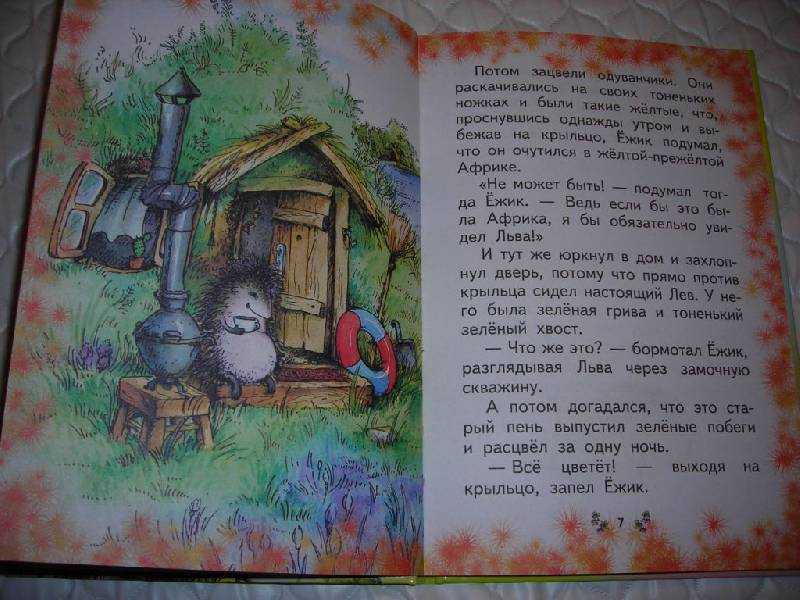 Потом зацвели одуванчики. Они
раскачивались на своих тоненьких
ножках и были такие жёлтые, что,
проснувшись однажды утром и вы-
бежав на крыльцо, Ёжик подумал,
что он очутился в жёлтой-прежёлтой
Африке.
«Не может быть! — подумал тог-
да Ёжик. — Ведь если бы это бы-
ла Африка, я бы обязательно уви-
дел Льва!»
И тут же юркнул в дом и захлоп-
нул дверь, потому что прямо против
крыльца сидел настоящий Лев. У не-
го была зелёная грива и тоненький
зелёный хвост.
— Что же это? — бормотал Ёжик,
разглядывая Льва через замочную
скважину.
А потом догадался, что это ста-
рый пень выпустил зелёные побеги
и расцвёл за одну ночь.
— Всё цветёт! — выходя на
крыльцо, запел Ёжик.
7